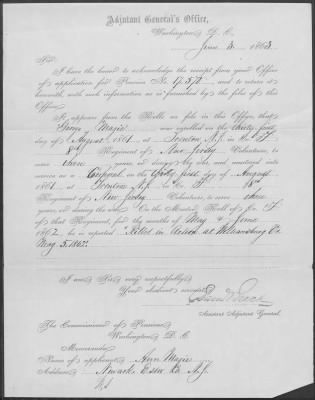 Adjutant General's Office,
Washington, D. C.
June 3, 1863
Sir:
I have the honor to acknowledge the receipt from your Office
of application for Pension No. 17,572, and to return it
herewith, with such information as is furnished by the files of this
Office.
It appears from the Rolls on file in this Office, that
was enrolled on the thirty first
day of August, 1861, at Trenton N.J. in Co. F,
8th Regiment of New Jersey Volunteers, to
serve three years, or during the war, and mustered into
service as a Corporal on the thirty first day of August
1861, at Trenton N.J. in Co. F, 8th
Regiment of New Jersey Volunteers, to serve three
years, or during the war. On the Muster Roll of Co. F
of that Regiment, for the months of May & June
1862, he is reported "Killed in action at Williamsburg Va
May 5, 1862."
I am Sir, very respectfully,
Your obedient servant,
Assistant Adjutant General.
The Commissioner of Pensions
Washington, D. C.
Memoranda:
Name of applicant, Ann
Address, Newark, Essex Co. N.J.